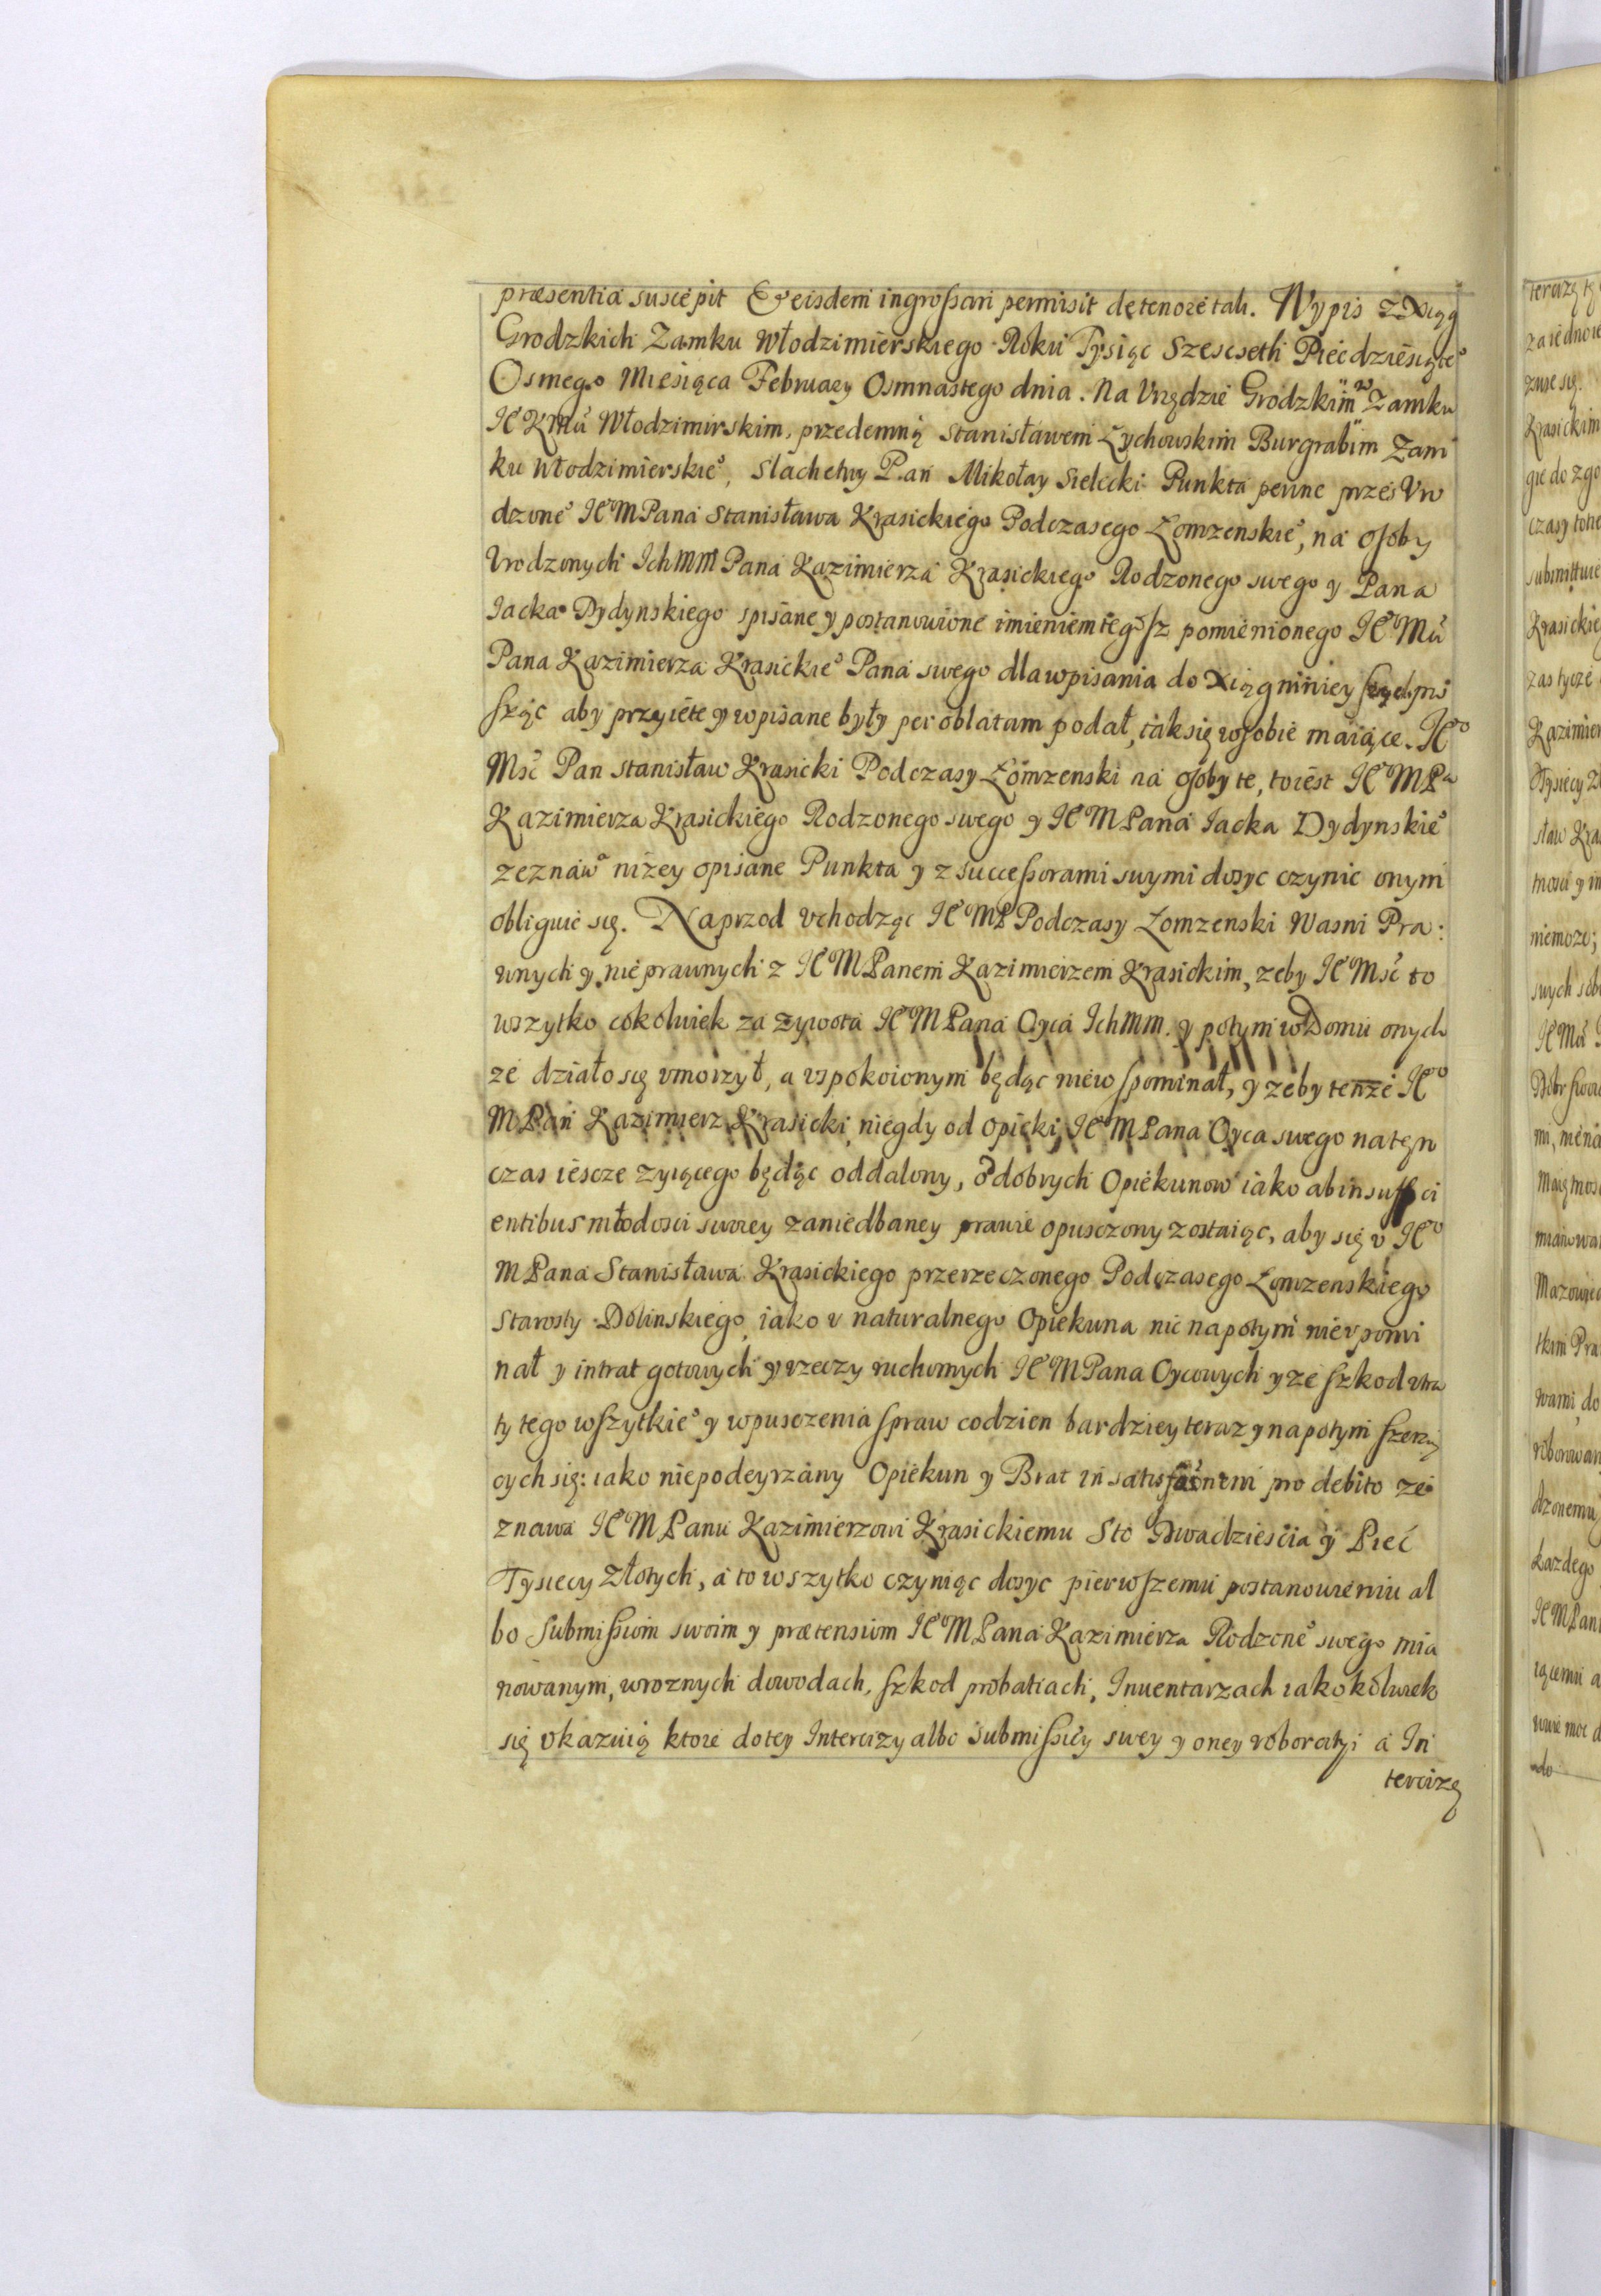 præsentia suscepit Et eisdem ingrossari permisit de tenore tali. Wypis z Xiąg
Grodzkich Zamku Włodzimierskiego Roku Tysiąc Szescseth Piecdziesiąte°
Osmego Miesiąca February Osmnastego dnia. Na Vrzędzie Grodzkim w Zamku
IE° KMci Włodzimirskim, przedemną Stanisławem Łychowskim Burgrabim Zam
ku Włodzimierskie°, Slachetny Pan Mikołay Sielecki Punkta pewne przes Vro
dzone° IE° M Pana Stanisława Krasickiego Podczasego Łomzenskie°, na osoby
Vrodzonych Ich MM Pana Kazimierza Krasickiego Rodzonego swego y Pana
Iacka Dydynskiego spisane y postanowione imieniem tegosz pomienionego IE° Mci
Pana Kazimierza Krasickie° Pana swego dla wpisania do Xiąg ninieyszych pro
sząc aby przyięte y wpisane były per oblatam podał, tak się w sobie maiące. IE°
Msc Pan Stanisław Krasicki Podczasy Łomzenski na osoby te, to iest IE° M Pa
Kazimierza Krasickiego Rodzonego swego y IE° M Pana Iacka Dydynskie°
zeznawa nizey opisane Punkta y z successorami swymi dosyc czynic onym
obliguie się. Naprzod vchodząc IE° MP Podczasy Łomzenski Wasni Pra:
wnych y nieprawnych z IE° M Panem Kazimierzem Krasickim, zeby IE° Msc to
wszytko cokolwiek za zywota IE° M Pana Oyca Ich MM. y potym w Domu onych
ze działo się vmorzył, a vspokoionym będąc niewspominał, y zeby tenze IE°
M Pan Kazimierz Krasicki, niegdy od opieki IE° M Pana Oyca swego na ten
czas iescze zyiącego będąc oddalony, od dobrych Opiekunow iako ab insuffici
entibus młodosci swoiey zaniedbaney prawie opusczony zostaiąc, aby się v IE°
M Pana Stanisława Krasickiego przerzeczonego Podczasego Łomzenskiego
Starosty Dolinskiego, iako v naturalnego Opiekuna nic napotym nievpomi
nał y intrat gotowych y rzeczy ruchomych IE° M Pana Oycowych y ze szkod vtra
ty tego wszytkie° y wpusczenia spraw codzien bardziey teraz y napotym szerzą
cych się: iako niepodeyrzany Opiekun y Brat in satisfactionem pro debito ze
znawa IE° M Panu Kazimierzowi Krasickiemu Sto Dwadziescia y Piec
Tysiecy Złotych, a to wszytko czyniąc dosyc pierwszemu postanowieniu al
bo submissiom swoim y prætensiom IE° M Pana Kazimierza Rodzone° swego mia
nowanym, w roznych dowodach, szkod probatiach, Inuentarzach iakokolwiek
się vkazuią ktore do tey Intercizy albo submissiey swey y oney roboratyi a In
tercizę